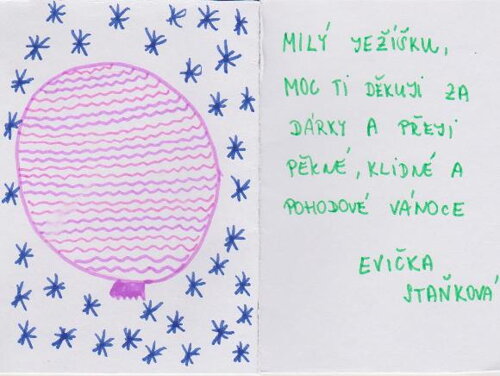 MILÝ JEŽÍŠKU,
MOC TI DĚKUJI ZA
DÁRKY A PŘEJI
PĚKNÉ, KLIDNÉ A
POHODOVÉ VÁNOCE
EVIČKA
STAŇKOVÁ